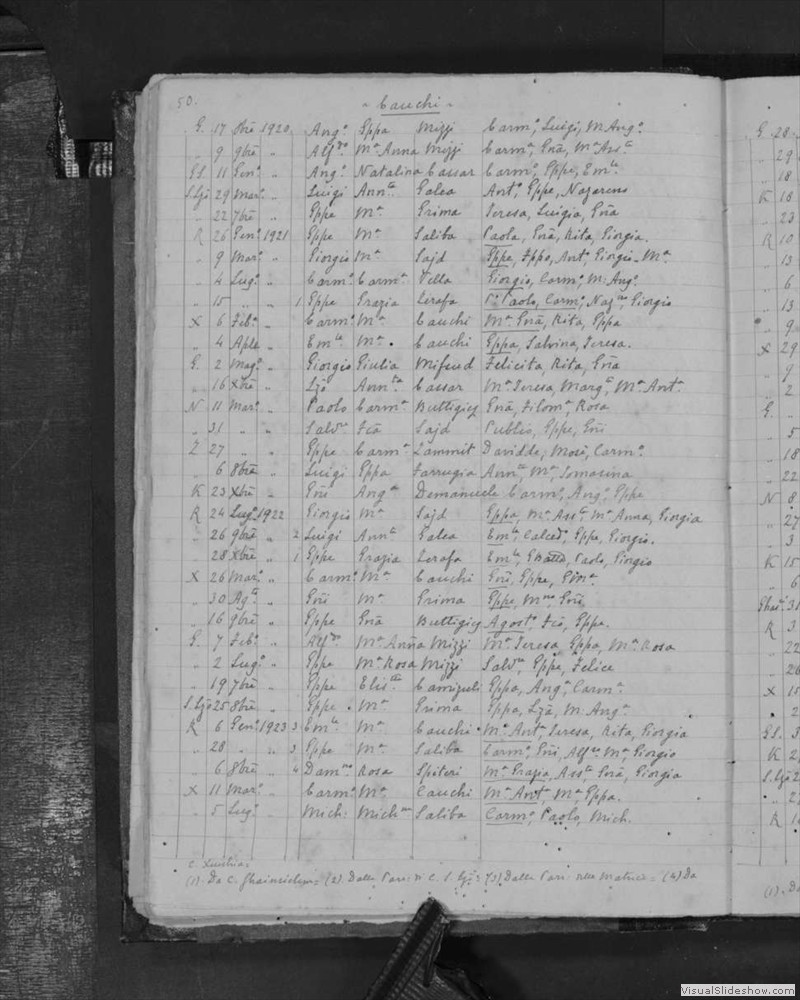 50.
Cauchi
G. 17 8bre 1920 Angº Gppa Mizzi Carmª, Luigi, M. Angª
" 9 9bre " Alfdo Mª Anna Mizzi Carmª, Gnã, Mª Assta
GS. 11 Genº " Angº Natalina Cassar Carmº, Gppe, Emle
S. Lzo 29 Marº " Luigi Annta Galea Antº, Gppe, Nazareno
" 22 7bre " Gppe Mª Grima Teresa, Luigia, Gnã
R 26 Genº 1921 Gppe Mª Saliba Paola, Gnã, Rita, Giorgia.
" 9 Marº " Giorgio Mª Sajd Gppe, Antº Giorgio Mª
" 4 Lugº " Carmº Carmª Vella Giorgio, Carmº, M. Angº
" 15 " " 1 Gppe Grazia Zerafa Paolo, Carmº, Nazno, Giorgio
X 6 Febº " Carmº Mª Cauchi Mª Gnã, Rita, Gppa
" 4 Aple " Emle Mª Cauchi Gppa, Salvina, Teresa.
G. 2 Magº " Giorgio Giulia Mifsud Felicita, Rita, Gnã
" 16 Xbre " Lzo Annta Cassar Mª Teresa, Margta, Mª Antª
N 11 Marº " Paolo Carmª Buttigieg Gnã, Filomª, Rosa
" 31 " " Salvre Fcã Sajd Publio, Gppe, Gñi
Z 27 " " Gppe Carmª Zammit Davidde, Mosè, Carmº
" 6 8bre " Luigi Gppa Farrugia Annta, Mª, Tomasina
K 23 Xbre " Gñi Angla Demanuele Carmº, Angº, Gppe
R 24 Lugº 1922 Giorgio Mª Sajd Gppa, Mª Assta, Mª Anna, Giorgia
" 26 9bre " 2 Luigi Annta Galea Emle, Calced, Gppe, Giorgio.
" 28 Xbre " 1 Gppe Grazia Zerafa Emle, Paolo, Giorgio
X 26 Marº " Carmº Mª Cauchi Gñi, Gppe
" 30 Agto " Gñi Mª Grima Gppe, Mno, Gñi,
" 16 9bre " Gppe Gnã Buttigieg Agostª, Fcã, Gppa.
G. 7 Febº " Alfdo Mª Anna Mizzi Mª Teresa, Gppa, Mª Rosa
" 2 Lugº " Gppe Mª Rosa Mizzi Salvre, Gppe, Felice
" 19 7bre " Gppe Elistta Camizuli Gppa, Angª, Carmª
S. Lzo 25 8bre " Gppe Mª Grima Gppa, Lzã, M. Angª
R 6 Genº 1923 3 Emle Mª Cauchi Mª Antª Teresa, Rita, Giorgia
" 28 " " 3 Gppe Mª Saliba Carmº, Gñi, Alfdo Mª, Giorgio
" 6 8bre " 4 Damno Rosa Spiteri Mª Grazia, Assta Gnã, Giorgia
X 11 Marº " Carmº Mª Cauchi Mª Antª, Mª, Gppa.
" 5 Lugº " Mich: Michna Saliba Carmº, Paolo, Mich.
(1). Da C. Ghainsielem = (2). Dalla Parr: di C. S. Lzo = (3) Dalla Parr: alla Matrice = (4) Da
G 28
" 29
" 18
K 18
" 23
R 10
" 13
" 6
" 13
" 9
X 29
" 9
" 2
G. "
" 5
" 18
" 22
N 8
" 27
" 3
K 15
" 6
31
R 3
" 22
" 26
X 15
" 2
GS. 3
K 2
S. Lzo 2
" 2
R 1
(1). Da
VisualSlideshow.com